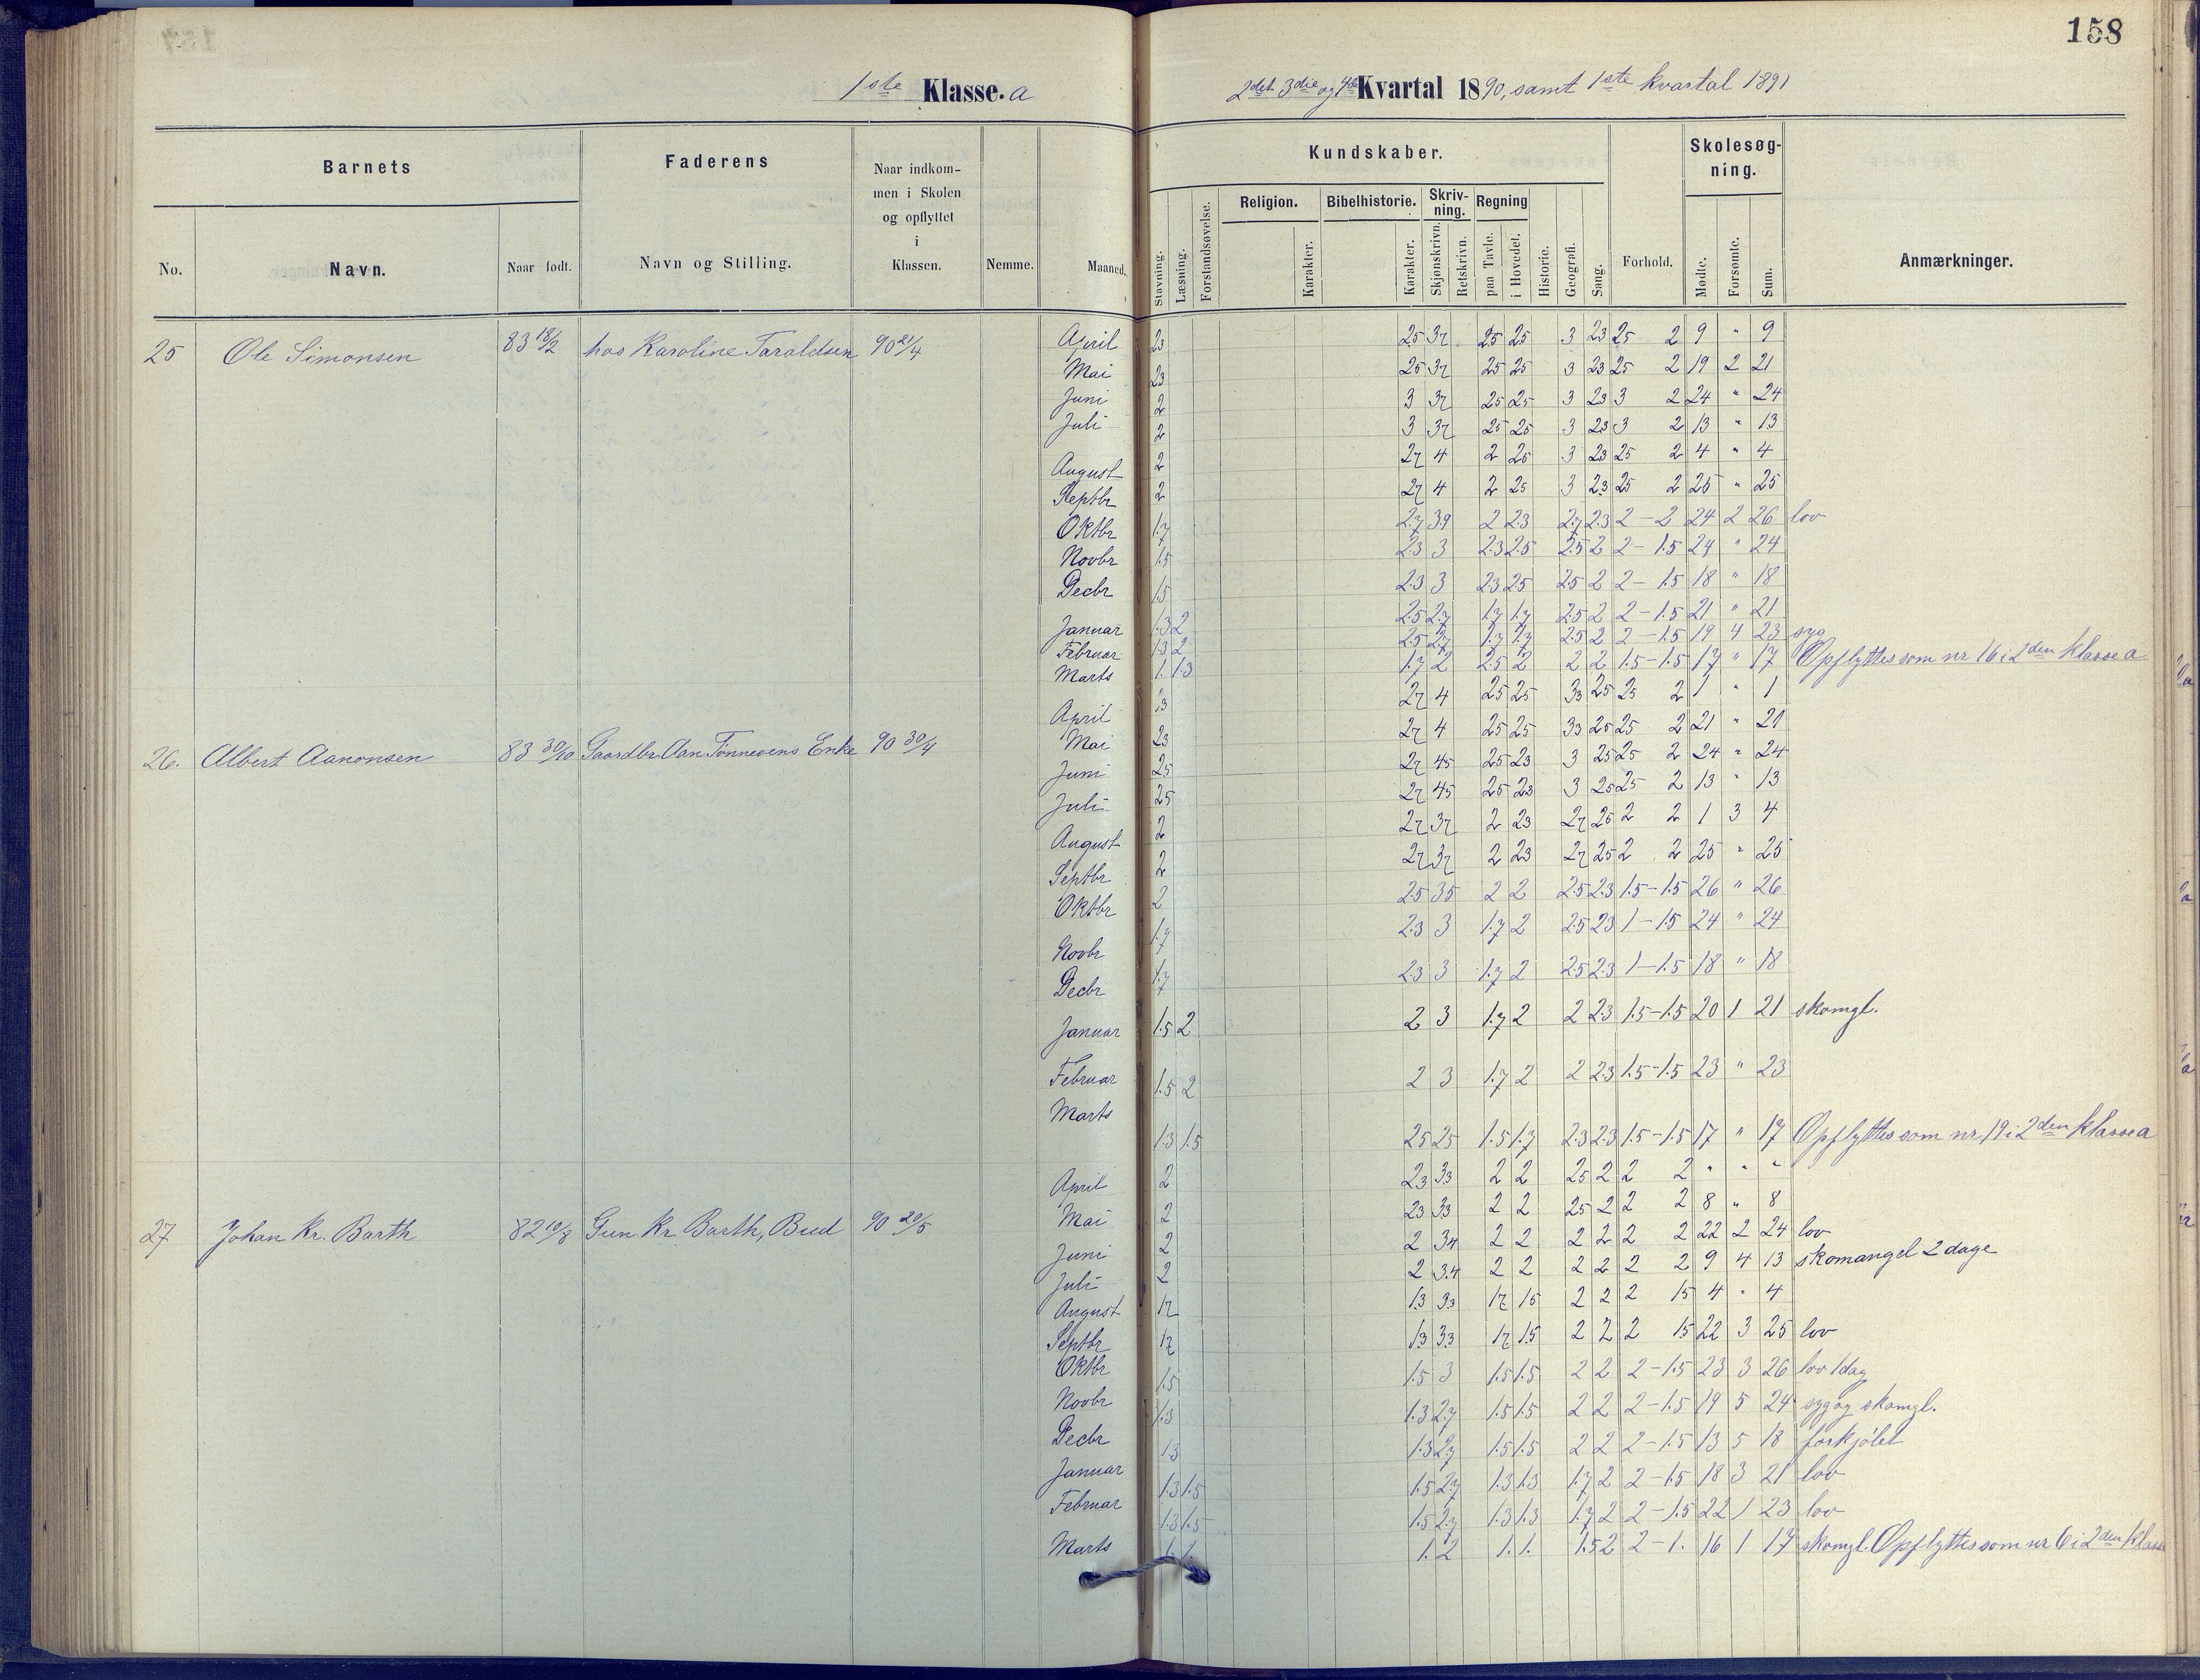 158
1ste Klasse. a
2det 3die og 4de Kvartal 1890, samt 1ste kvartal 1891
Barnets
Faderens
Naar indkommen i Skolen og opflyttet i Klassen.
Nemme.
Maaned.
Kundskaber.
Forhold.
Skolesøgning.
Anmærkninger.
No.
Navn.
Naar født.
Navn og Stilling.
Stavning.
Læsning.
Forstandsøvelse.
Religion.
Karakter.
Bibelhistorie.
Karakter.
Skrivning.
Skjønskrivn.
Retskrivn.
Regning
paa Tavle.
i Hovedet.
Historie.
Geografi.
Sang.
Mødte.
Forsømte.
Sum.
25 Ole Simonsen 83 18/2 hos Karoline Taraldsen 90 21/4
April 23 25 37 25 25 3 23 25 2 9 " 9
Mai 23 25 37 25 25 3 23 25 2 19 2 21
Juni 2 3 37 25 25 3 23 3 2 24 " 24
Juli 2 3 37 25 25 3 23 3 2 13 " 13
August 2 27 4 2 25 3 23 25 2 4 " 4
Septbr 2 27 4 2 25 3 23 25 2 25 " 25
Oktbr 1.7 2.7 3.9 2 2.3 2.7 2.3 2 - 2 24 2 26 lov
Novbr 1.5 2.3 3 2.3 2.5 2.5 2 2 - 1.5 24 " 24
Decbr 1.5 2.3 3 2.3 2.5 2.5 2 2 - 1.5 18 " 18
Januar 1.3 2 2.5 2.7 1.7 1.7 2.5 2 2 - 1.5 21 " 21
Februar 1.3 2 2.5 2.7 1.7 1.7 2.5 2 2 - 1.5 19 4 23 syg
Marts 1. 1.3 1.7 2 2.5 2 2 2 1.5 - 1.5 17 " 17 Opflyttes som nr 16 i 2den klasse a
26. Albert Aanonsen 83 30/10 Gaardbr. Aan Tønnesens Enke 90 30/4
April 23 27 4 25 25 33 25 25 2 1 " 1
Mai 23 27 4 25 25 33 25 25 2 21 " 21
Juni 25 27 45 25 23 3 25 25 2 24 " 24
Juli 25 27 45 25 23 3 25 25 2 13 " 13
August 2 27 37 2 23 27 25 2 2 1 3 4
Septbr 2 27 37 2 23 27 25 2 2 25 " 25
Oktbr 2 2.5 3.5 2 2 2.5 2.3 1.5 - 1.5 26 " 26
Novbr 1.7 2.3 3 1.7 2 2.5 2.3 1 - 1.5 24 " 24
Decbr 1.7 2.3 3 1.7 2 2.5 2.3 1 - 1.5 18 " 18
Januar 1.5 2 2 3 1.7 2 2 2.3 1.5 - 1.5 20 1 21 skomgl.
Februar 1.5 2 2 3 1.7 2 2 2.3 1.5 - 1.5 23 " 23
Marts 1.3 1.5 2.5 2.5 1.5 1.7 2.3 2.3 1.5 - 1.5 17 " 17 Opflyttes som nr 19 i 2den klasse a
27 Johan Kr. Barth 82 10/8 Gun Kr Barth, Bud 90 20/5
April 2 23 33 2 2 25 2 2 2 " " "
Mai 2 23 33 2 2 25 2 2 2 8 " 8
Juni 2 2 34 2 2 2 2 2 2 22 2 24 lov
Juli 2 2 3.4 2 2 2 2 2 2 9 4 13 skomangel 2 dage
August 17 13 33 17 15 2 2 2 15 4 " 4
Septbr 17 13 33 17 15 2 2 2 15 22 3 25 lov
Oktbr 1.5 1.5 3 1.5 1.5 2 2 2 - 1.5 23 3 26 lov 1 dag
Novbr 1.3 1.3 2.7 1.5 1.5 2 2 2 - 1.5 19 5 24 syg og skomgl.
Decbr 1.3 1.3 2.7 1.5 1.5 2 2 2 - 1.5 13 5 18 forkjølet
Januar 1.3 1.5 1.5 2.7 1.3 1.3 1.7 2 2 - 1.5 18 3 21 lov
Februar 1.3 1.5 1.5 2.7 1.3 1.3 1.7 2 2 - 1.5 22 1 23 lov
Marts 1. 1. 1. 2 1. 1. 1.5 2 2 - 1. 16 1 17 skomgl. Opflyttes som nr 6 i 2den klasse